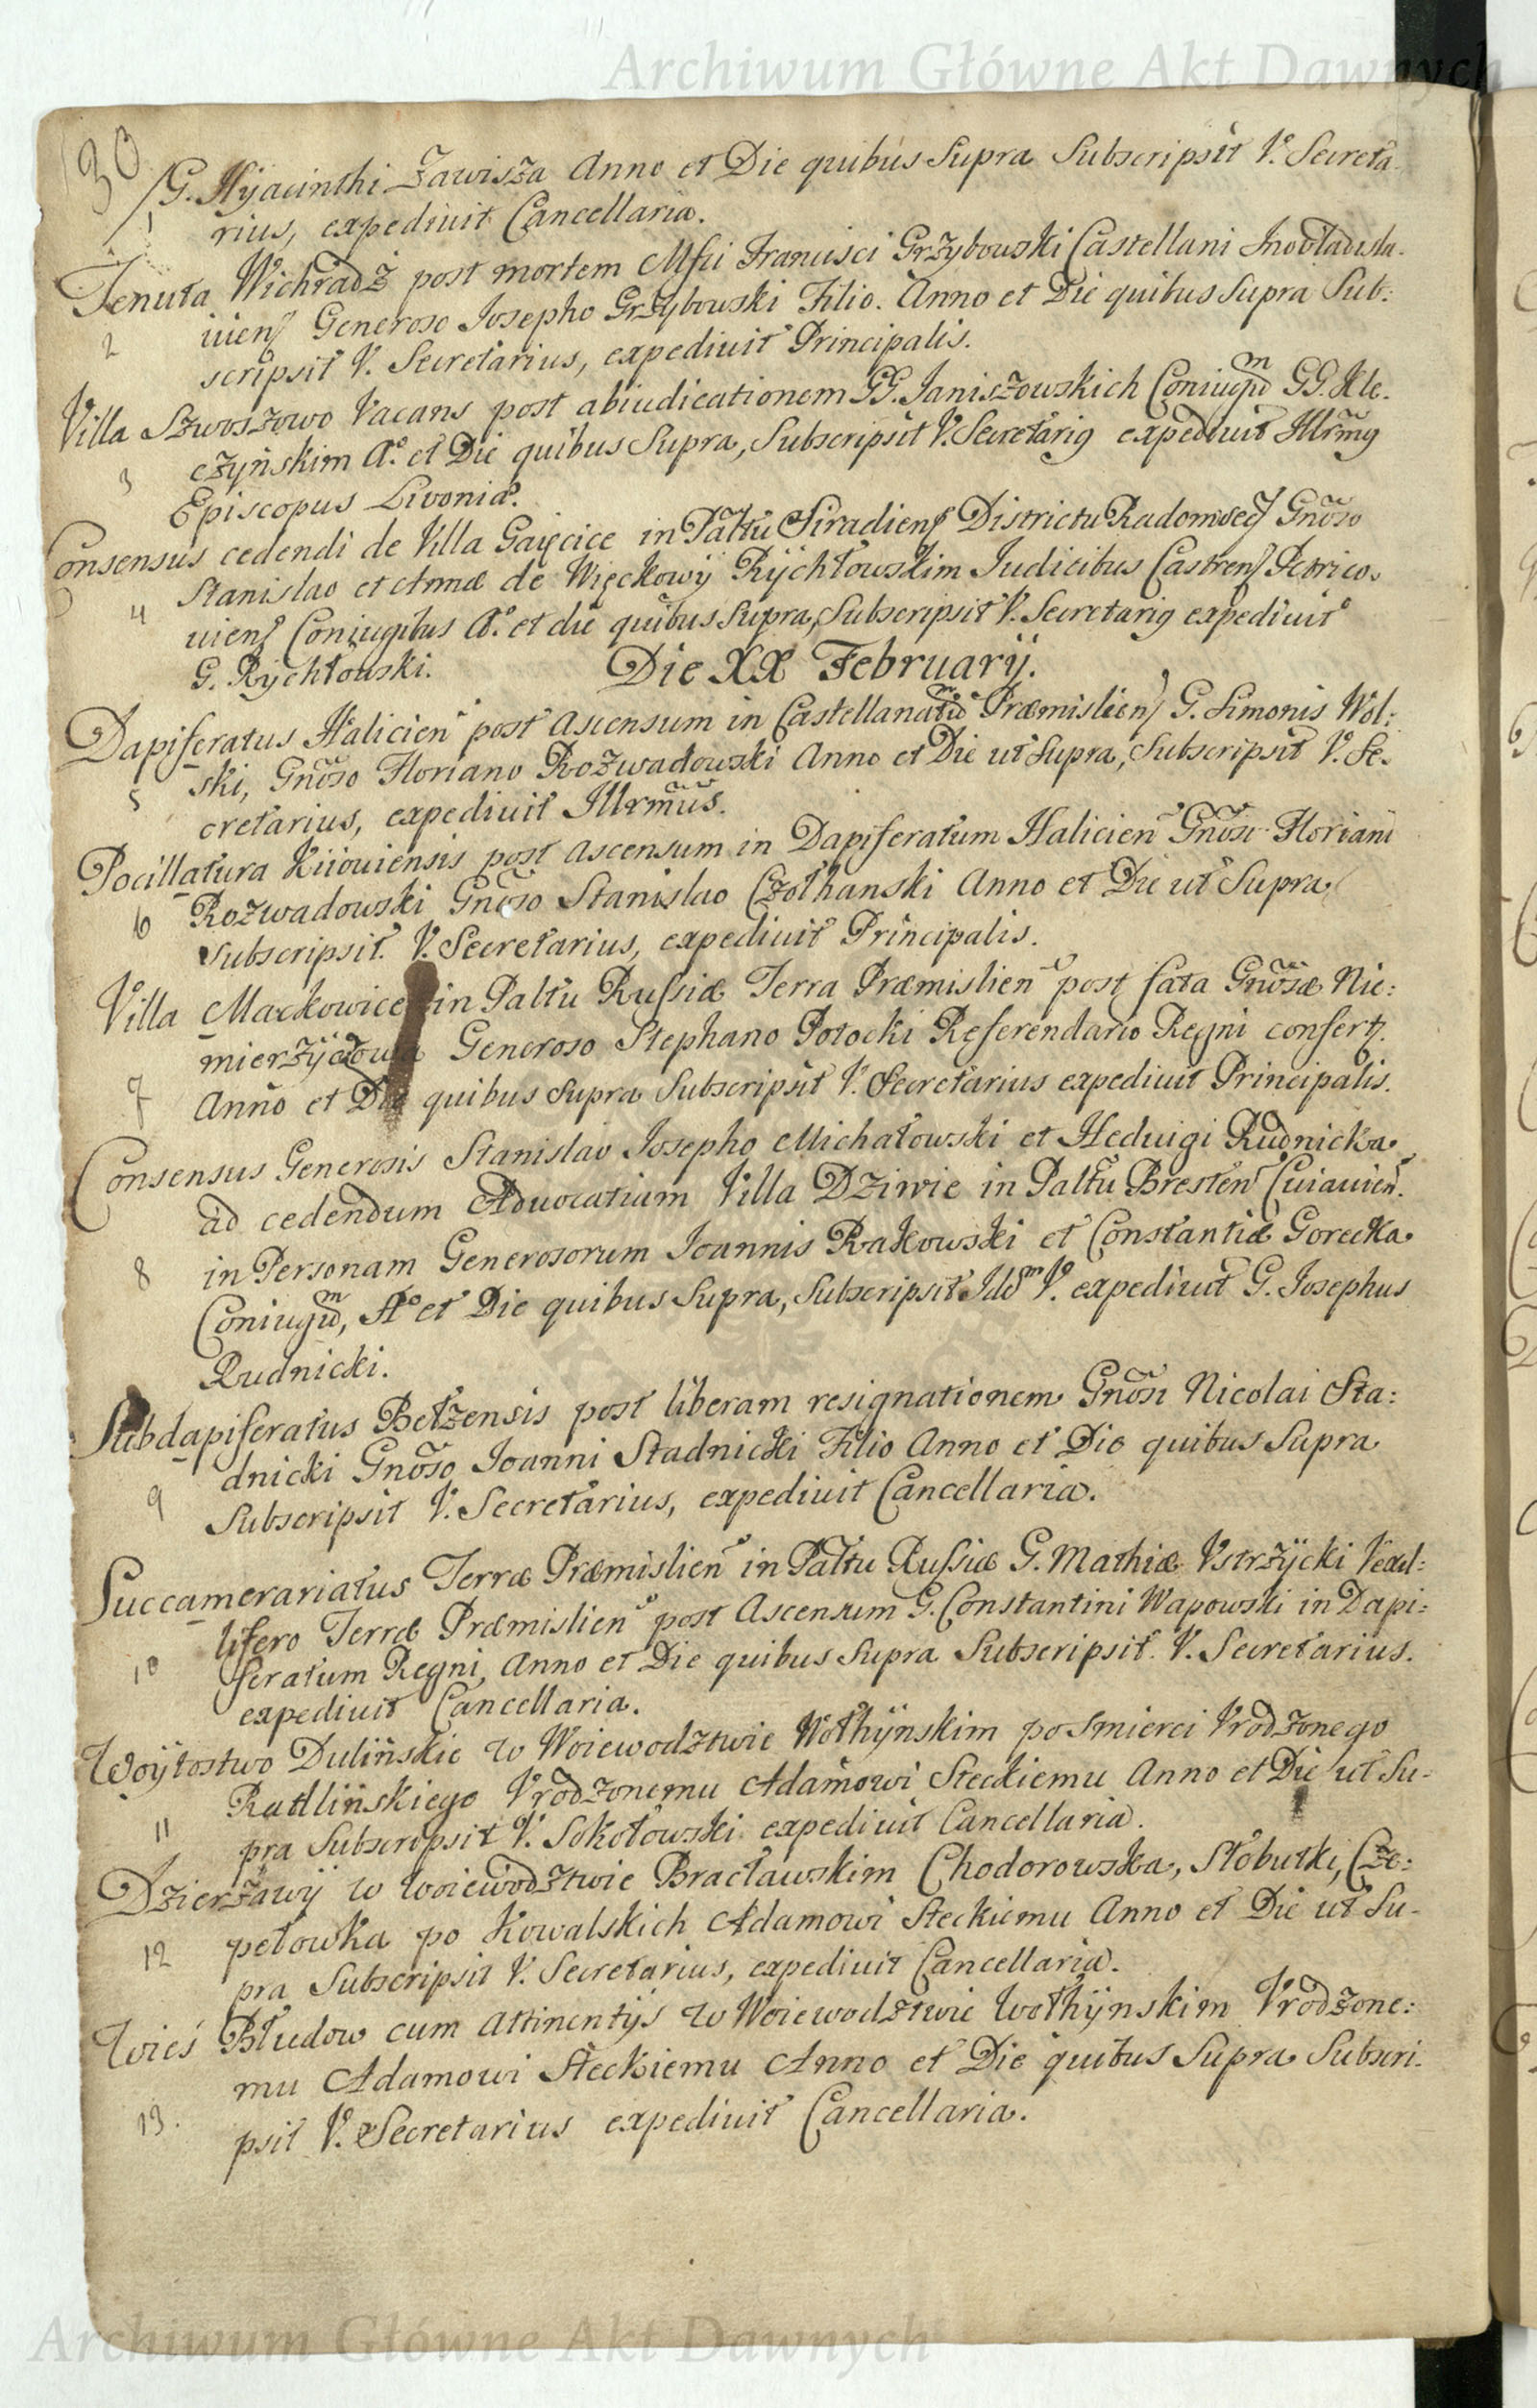 Archiwum Główne Akt Dawnych
30
G. Hyacinthi Zawisza Anno et Die quibus Supra Subscripsit V. Secreta-
1 rius, expediuit Cancellaria.
Tenuta Wichradz post mortem Mfci Francisci Grzybowski Castellani Inowladisla-
2 uiens Generoso Josepho Grzybowski Filio. Anno et Die quibus Supra Sub:
scripsit V. Secretarius, expediuit Principalis.
Villa Szwoszowo Vacans post abiudicationem GG. Janiszowskich Coniugu͂m GG. Kle-
3 czyńskim Aº. et Die quibus Supra, Subscripsit V. Secretarig expediuit Illrm͂g
Episcopus Livoniæ.
Consensus cedendi de Villa Gajęcice in Palt͂u Siradiens Districtu Radomsec Gno͂so
4 Stanislao et Annæ de Więckowy Rychłowskim Judicibus Castrens Petrico-
uiens Coniugibus Aº. et die quibus Supra, Subscripsit V. Secretarig expediuit
G. Rychłowski. Die XX February.
Dapiferatus Halicien post Ascensum in Castellanatu͂m Præmislien G. Simonis Wol:
5 ski, Gno͂so Floriano Rozwadowski Anno et Die ut Supra, Subscripsit V. Se-
cretarius, expediuit Illrm͂us.
Pocillatura Kiiouiensis post Ascensum in Dapiferatum Halicien Gno͂si Floriani
6 Rozwadowski Gno͂so Stanislao Czołhanski Anno et Die ut Supra
Subscripsit. V. Secretarius, expediuit Principalis.
Villa Mackowice in Paltu Russiæ Terra Præmislien post fata Gno͂sæ Nie:
mierzyczowa Generoso Stephano Potocki Referendario Regni confert.
7 Anno et Die quibus Supra Subscripsit V. Secretarius expediuit Principalis.
Consensus Generosis Stanislao Josepho Michałowski et Heduigi Rudnicka
ad cedendum Aduocatium Villa Dziwie in Palt͂u Bresten Cuiauien.
8 in Personam Generosorum Joannis Rakowski et Constantiæ Gorecka
Coniugu͂m, Aº et Die quibus Supra, Subscripsit Idem V. expediuit G. Josephus
Rudnicki.
Subdapiferatus Bełzensis post liberam resignationem Gno͂si Nicolai Sta:
dnicki Gno͂so Joanni Stadnicki Filio Anno et Die quibus Supra
9 Subscripsit V. Secretarius, expediuit Cancellaria.
Succamerariatus Terræ Præmislien in Paltu Russiæ G. Mathiæ Vstrzycki Vexil:
lifero Terræ Præmislien post Ascensum G. Constantini Wapowski in Dapi:
10 feratum Regni, Anno et Die quibus Supra Subscripsit. V. Secretarius.
expediuit Cancellaria.
Woytostwo Dulińskie w Woiewodztwie Wołhynskim po Smierci Vrodzonego
Radlińskiego Vrodzonemu Adamowi Steckiemu Anno et Die ut Su-
11 pra Subscripsit V. Sokołowski expediuit Cancellaria.
Dzierżawy w woiewodztwie Bracławskim Chodorowska, Słobutki, Cze:
12 pełowka po Kowalskich Adamowi Steckiemu Anno et Die ut Su-
pra Subscripsit V. Secretarius, expediuit Cancellaria.
Wieś Błudow cum Attinentijs w Woiewodztwie Wołhynskim Vrodzone:
mu Adamowi Steckiemu Anno et Die quibus Supra Subscri-
13. psit V. Secretarius expediuit Cancellaria.
Archiwum Główne Akt Dawnych